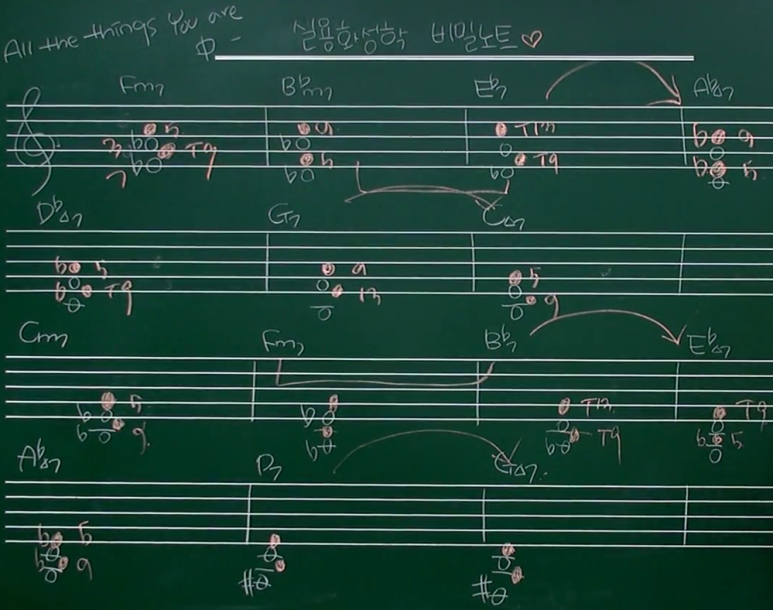 All the things You are
실용화성학 비밀노트♡
Fm7 B♭m7 E♭7 A♭△7
♭ 5 3 T9 7 ♭
♭ 9 ♭ 5
T13 T9 ♭
♭ 9 ♭ 5
D♭△7 G7 C△7
♭ 5 ♭ T9
9 13
5 9
Cm7 Fm7 B♭7 E♭△7
♭ 5 ♭ 9
♭ ♭
T13 ♭ T9
T9 ♭ 5
A♭△7 D7 G△7
♭ 5 ♭ 9
#
#